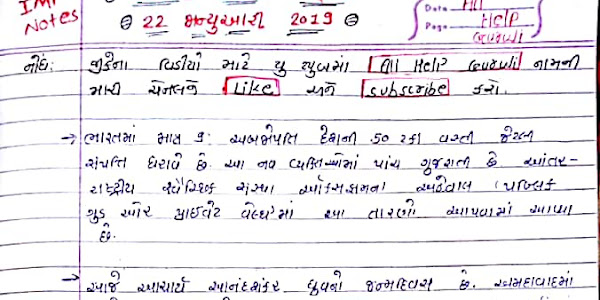 IMP Notes
22 જાન્યુઆરી 2019
Date
Page
All HELP Guruji
નોંધ: જીકેના વિડીયો માટે યુ ટ્યુબમાં All Help Guruji નામની
મારી ચેનલને Like અને subscribe કરો.
→ ભારતમાં માત્ર 9 અબજોપતિ દેશની 50 ટકા વસ્તી જેટલી
સંપત્તિ ધરાવે છે. આ નવ વ્યક્તિઓમાં પાંચ ગુજરાતી છે આંતર-
રાષ્ટ્રીય સ્વૈચ્છિક સંસ્થા ઓક્સફામના અહેવાલ પબ્લિક
ગુડ ઓર પ્રાઈવેટ વેલ્થ'માં આ તારણો આપવામાં આવ્યા
છે.
→ આજે આચાર્ય આનંદશંકર ધ્રુવનો જન્મદિવસ છે. અમદાવાદમાં